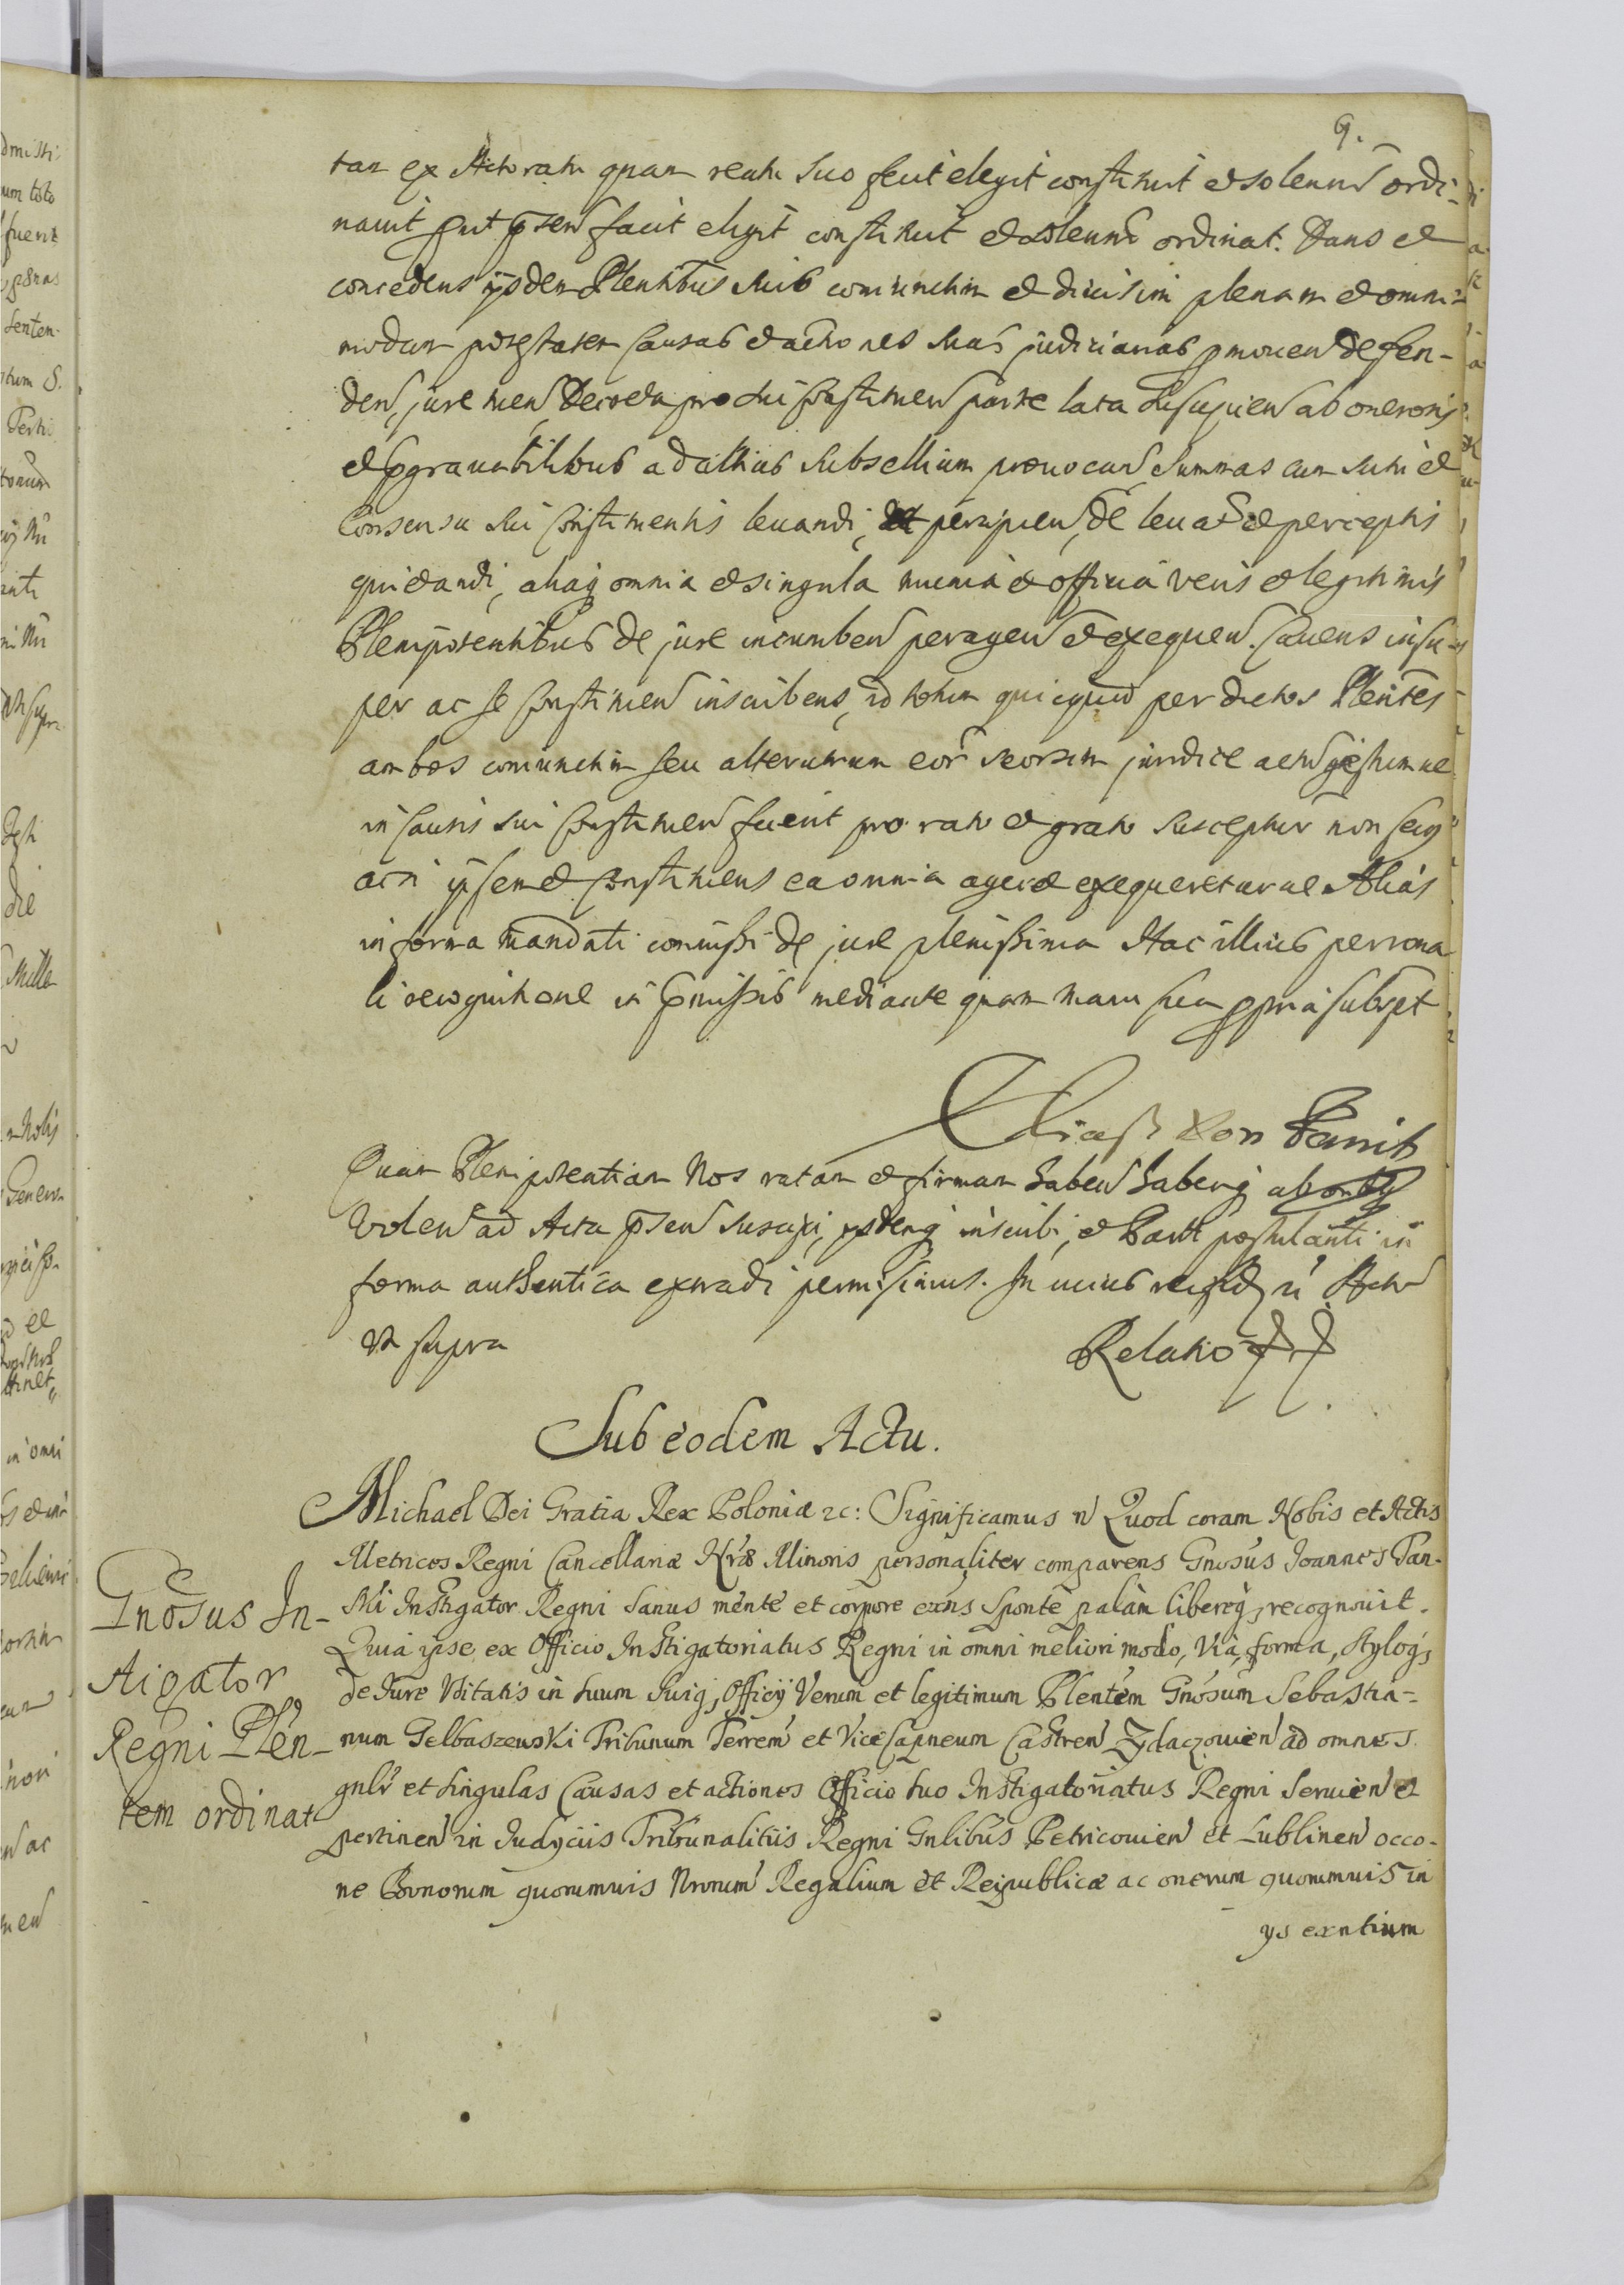 9.
tam ex Actoratu quam reatu suo fecit elegit constituit et solenn̄ ordi-
navit put p̄sen facit eligit constituit et solenn̄ ordinat. Dans et
concedens ijsdem Plentibus suis coniunctim et divisim plenam et omni-
modam potestatem Causas et actiones suas judiciarias pmouen defen-
den, jura tuen, Decreta pro sui constituen parte lata suscipien ab onerosis
et pgravatilibus ad altius subsellium prouocan, summas cum scitu et
Consensu sui Constituentis levandi, percipien, de leuatis et perceptis
quietandi, aliaq omnia et singula munia et officia veris et legitimis
Plenipotentibus de jure incumben peragen et exequen. Cavens insu-
per ac se Constituen inscribens, id totum quicquid per dictos Plentes
ambos coniunctim seu alterutrum eor̄ seorsim juridice actu gestumue
in Causis sui Constituen fuerit pro rato et grato suscepturū non secus
acsi ipsemet Constituens ea omnia ageret exequereturue Alias
in forma mandati commissi de jure plenissima Hac illius persona-
li recognitione in pmissis mediante quam manu sua ppria subspt
Eliaß von
Quam Plenipotentiam Nos ratam et firmam haben haberiq ab omnibus
volen ad Acta p̄sen suscipi, ijsdemq inscribi, et Parti postulanti in
forma authentica extradi permisimus. In cuius rei fid, n̄ Act
ut supra
Relatio
Sub eodem Actu.
Michael Dei Gratia Rex Poloniæ &c: Significamus n̄ Quod coram Nobis et Actis
Metrices Regni Cancellariæ Nr̄æ Minoris personaliter comparens Gnosus Joannes Tań-
ski Instigator Regni Sanus mente et corpore exn̄s sponte palàm libereq, recognovit.
Quia ipse ex Officio Instigatoriatus Regni in omni meliori modo, Viâ, forma, stylóq,
de Jure Vsitatis in suum suiq, Officij Verum et legitimum Plentem Gnosum Sebastia-
num Gelbaszewski Tribunum Terrem et ViceCapneum Castren Zydaczouien ad omnes
gnlr̄ et singulas Causas et actiones Officio suo Instigatoriatus Regni Seruien et
pertinen in Judycijs Tribunalitijs Regni Gnlibus Petricouien et Lublinen occo-
ne Bonorum quorumuis Nrorum Regalium et Reipublicæ ac onerum quorumuis in
ys exntium
Gnosus In-
stigator
Regni Plen-
tem ordinat